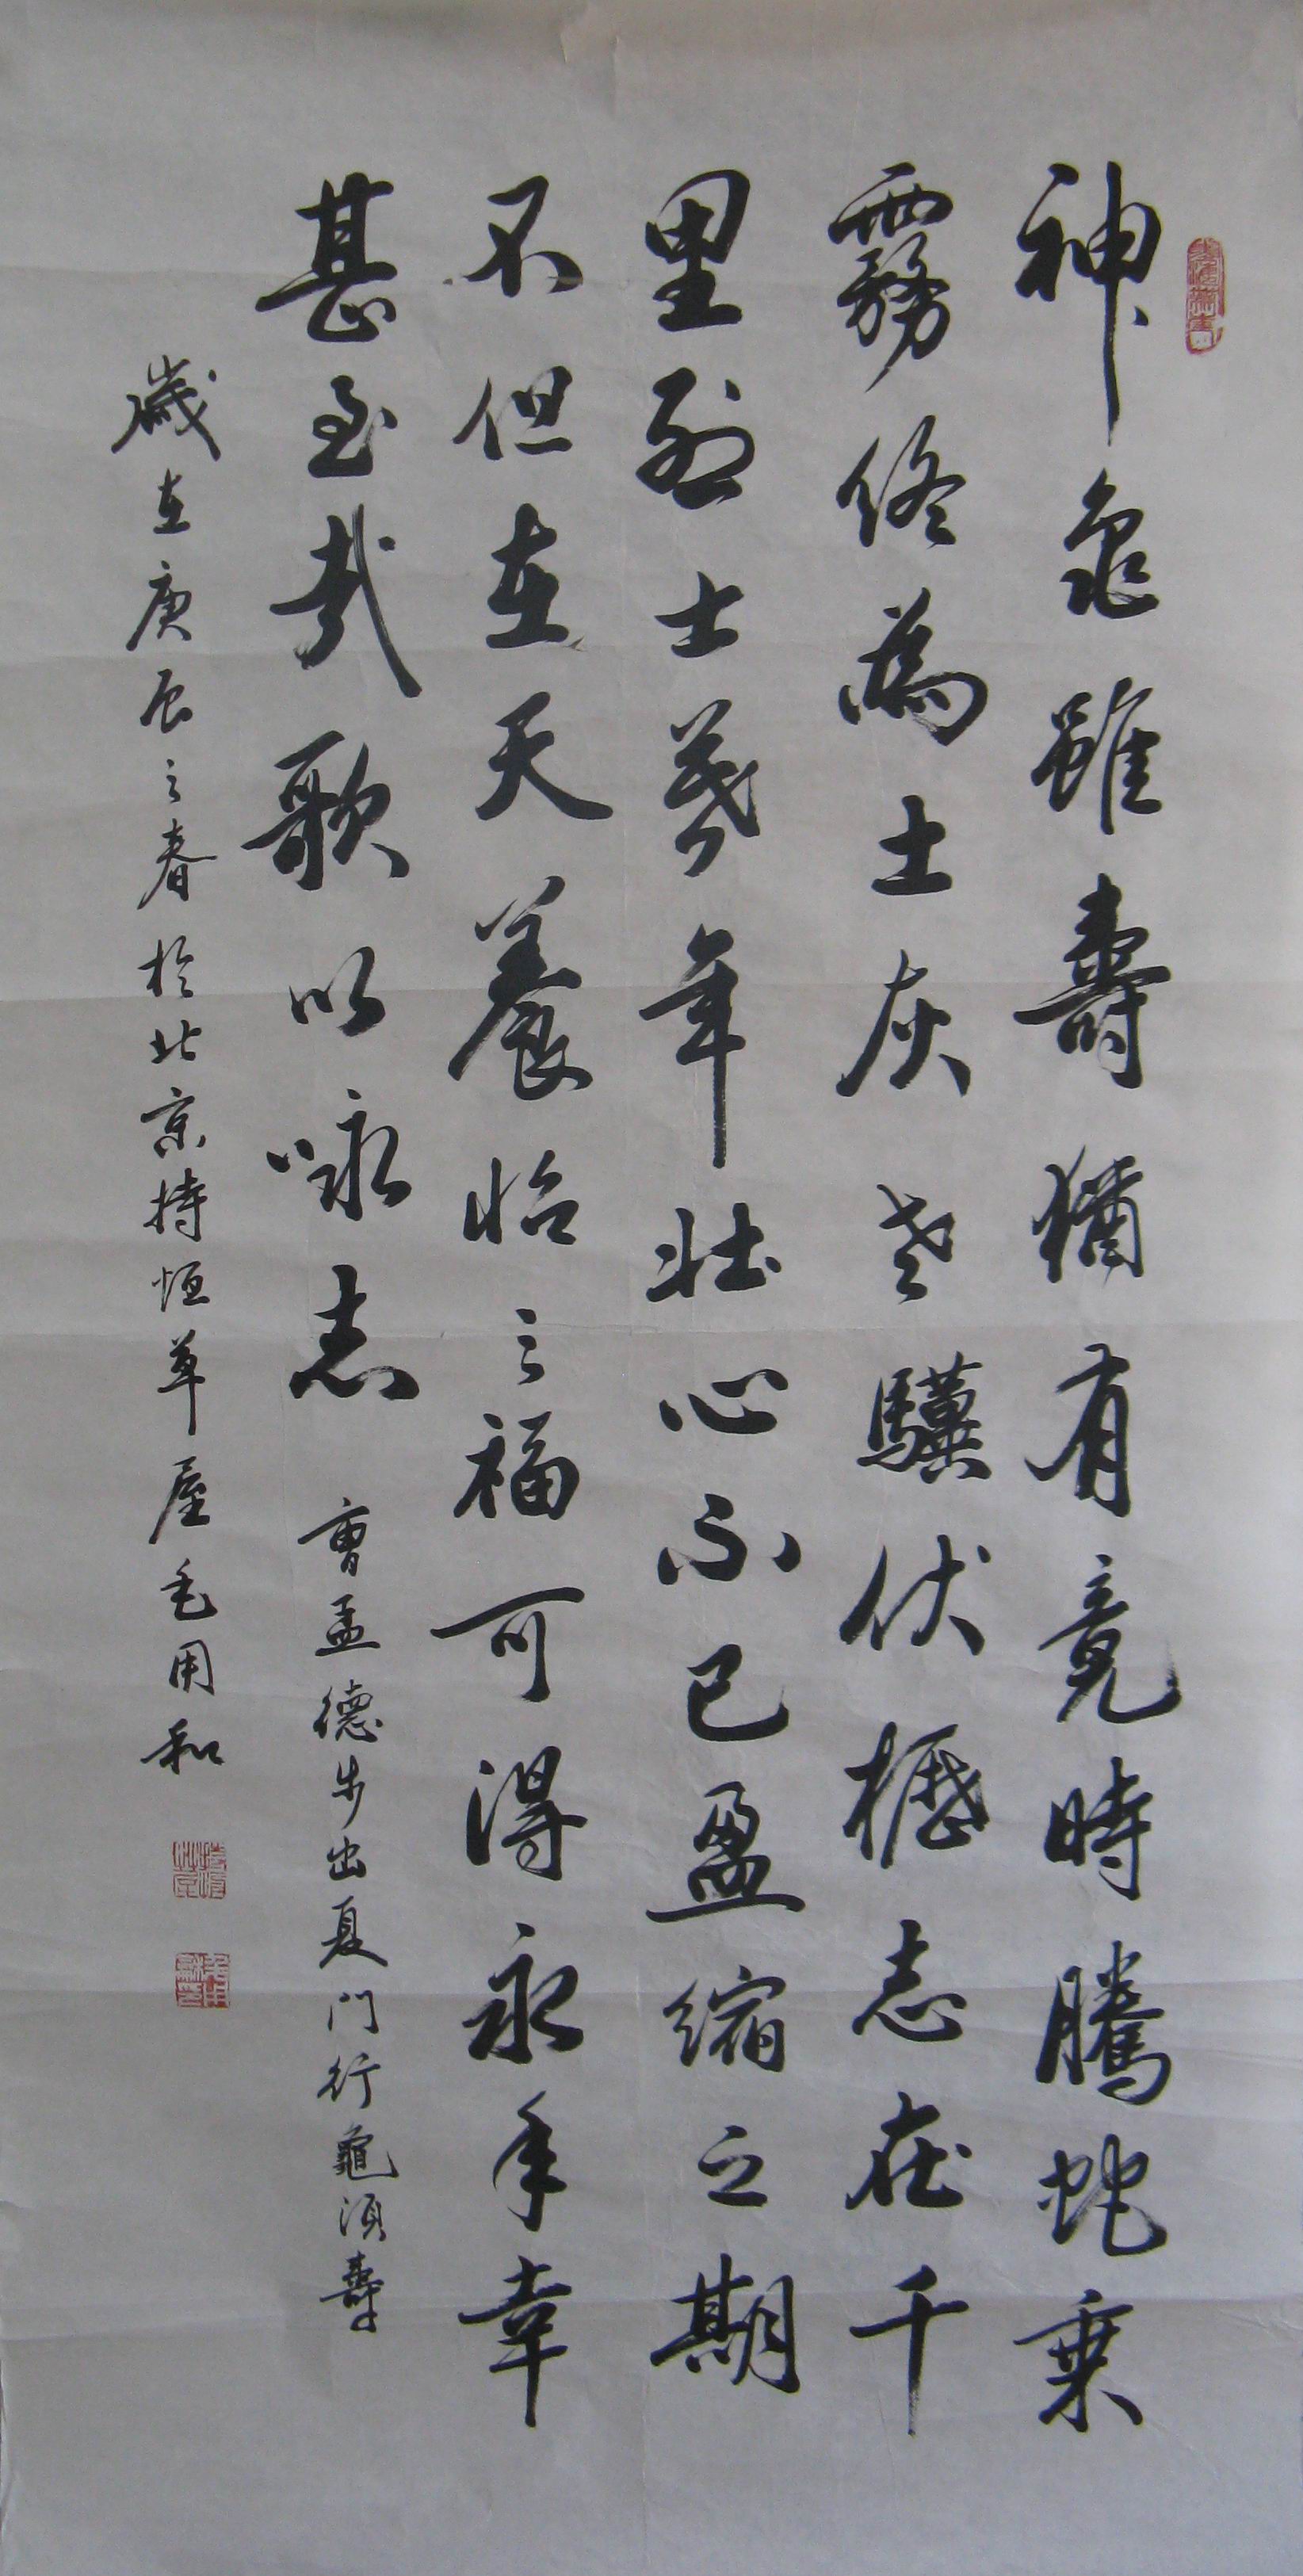 神龜雖壽猶有竟時騰蛇乗
霧終為土灰老驥伏櫪志在千
里烈士暮年壯心不已盈縮之期
不但在天養怡之福可得永年幸
甚至哉歌以詠志 曹孟德步出夏門行龜須壽
歲在庚辰之春於北京持恒草屋毛用和